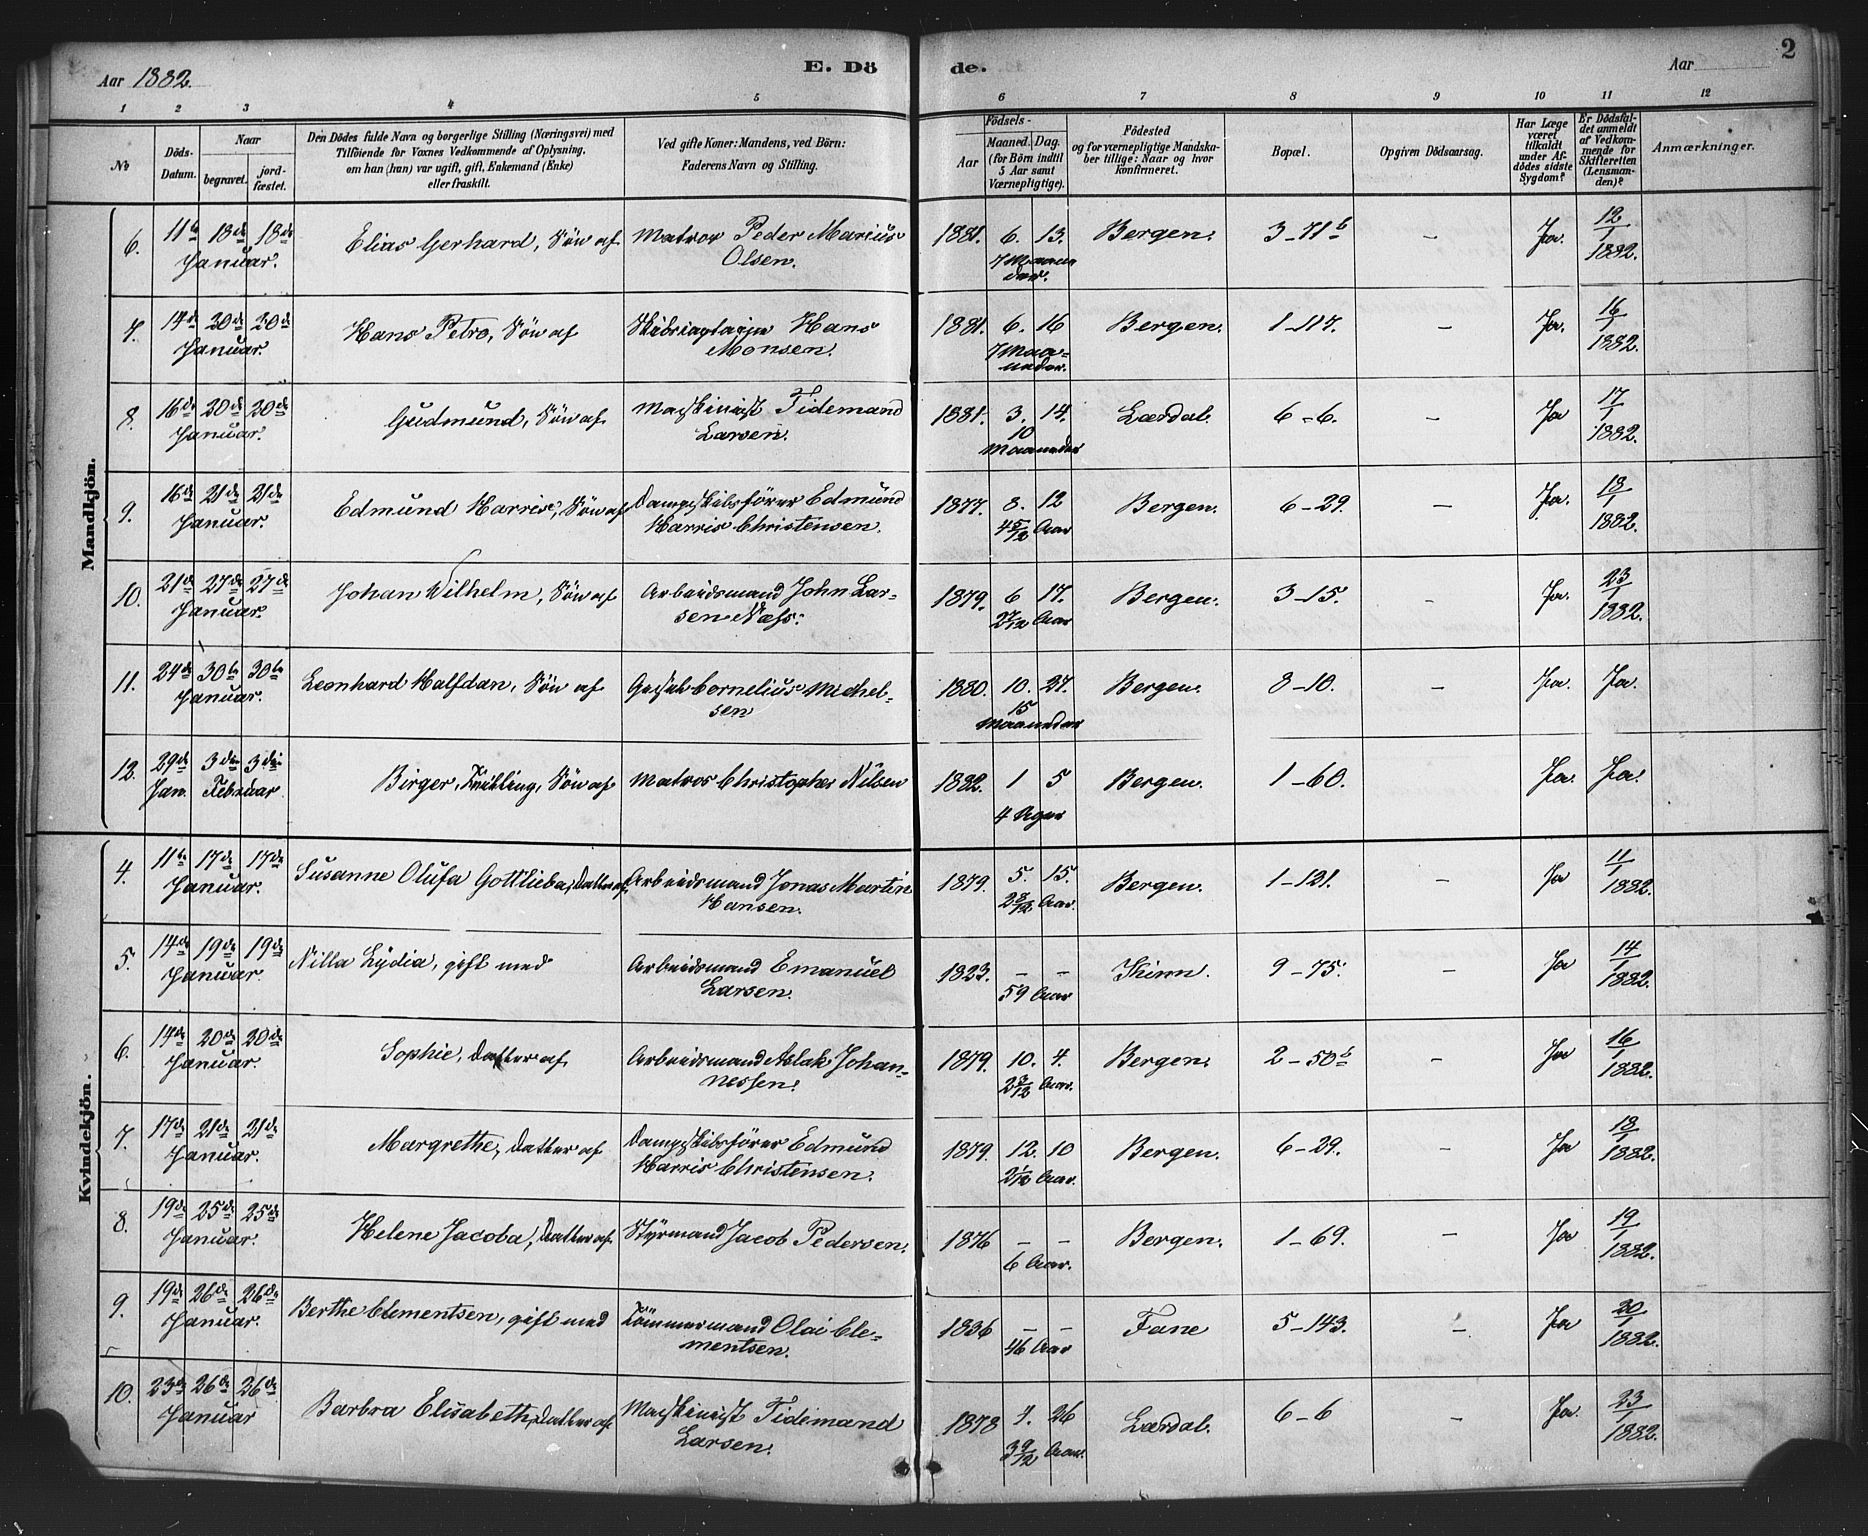 Aar 1882. E. Döde. Aar 2
1 2 3 4 5 6 7 8 9 10 11 12
No Döds-Datum. Naar begravet. jordfæstet. Den Dödes fulde Navn og borgerlige Stilling (Næringsvei) med Tilföiende for Voxnes Vedkommende af Oplysning, om han (hun) var ugift, gift, Enkemand (Enke) eller fraskilt. Ved gifte Koner: Mandens, ved Börn: Faderens Navn og Stilling. Födsels- Aar Maaned. Dag. (for Börn indtil 5 Aar samt Værnepligtige). Födested og for værnepligtige Mandskaber tillige: Naar og hvor konfirmeret. Bopæl. Opgiven Dödsaarsag. Har Læge været tilkaldt under Afdödes sidste Sygdom? Er Dödsfaldet anmeldt af Vedkommende for Skifteretten (Lensmanden)? Anmærkninger.
Mandkjön.
6. 11te 18de 18de Januar. Elias Gerhard, Sön af Matros Peder Marius Olsen. 1881. 6. 13. 7 Maaneder. Bergen. 3-71b – Ja. 12/1 1882.
7. 14de 20de 20de Januar. Hans Petro, Sön af Hans Monsen. 1881. 6. 16 7 Maaneder. Bergen. 1-117. – Ja. 16/1 1882.
8. 16de 20de 20de Januar. Gudmund, Sön af Maskinist Tidemand Larsen. 1881. 3. 14. 10 Maaneder Lærdal. 6-6. – Ja 17/1 1882.
9. 16de 21de 21de Januar. Edmund Harris, Sön af Dampskibsförer Edmund Harris Christensen. 1877. 8. 12 4 5/12 Aar Bergen. 6-29. – Ja. 18/1 1882.
10. 21de 27de 27de Januar. Johan Wilhelm, Sön af Arbeidsmand John Larsen Næss. 1879. 6 17. 2 7/12 Aar Bergen. 3-15. – Ja. 23/1 1882.
11. 24de 30te 30te Januar. Leonhard Halfdan, Sön af Cornelius Michelsen 1880. 10. 27. 15 Maaneder Bergen. 8-10. – Ja. Ja.
12. 29de Jan. 3die 3die Februar. Birger, Tvilling, Sön af Matros Christopher Nilsen 1882. 1 5 4 Uger Bergen. 1-60. Ja. Ja.
Kvindekjön.
4. 11te 17de 17de Januar. Susanne Olufa Gottlieba, Datter af Arbeidsmand Jonas Martin Hansen. 1879. 5. 15. 2 8/12 Aar. Bergen. 1-121. – Ja 11/1 1882.
5. 14de 19de 19de Januar. Nilla Lydia, gift med Arbeidsmand Emanuel Larsen. 1823. – – 59 Aar Kinn. 9-75. – Ja 14/1 1882.
6. 14de 20de 20de Januar. Sophie, Datter af Arbeidsmand Aslak Johannessen. 1879. 10. 4. 2 3/12 Aar. Bergen. 2-50b – Ja 16/1 1882.
7. 17de 21de 21de Januar. Margrethe, Datter af Dampskibsförer Edmund Harris Christensen. 1879. 12. 10 2 1/12 Aar. Bergen. 6-29. – Ja 18/1 1882.
8. 19de 25de 25de Januar. Helene Jacoba, Datter af Styrmand Jacob Pedersen. 1876 – – 6 Aar. Bergen. 1-69. – Ja 19/1 1882.
9. 19de 26de 26de Januar. Berthe Clementsen, gift med Tömmermand Olai Clementsen. 1836 – – 46 Aar Fane 5-143. – Ja 20/1 1882.
10. 23de 26de 26de Januar Barbra Elisabeth, Datter af Maskinist Tidemand Larsen. 1878 4. 26 3 9/12 Aar. Lærdal. 6-6 – Ja. 23/1 1882.